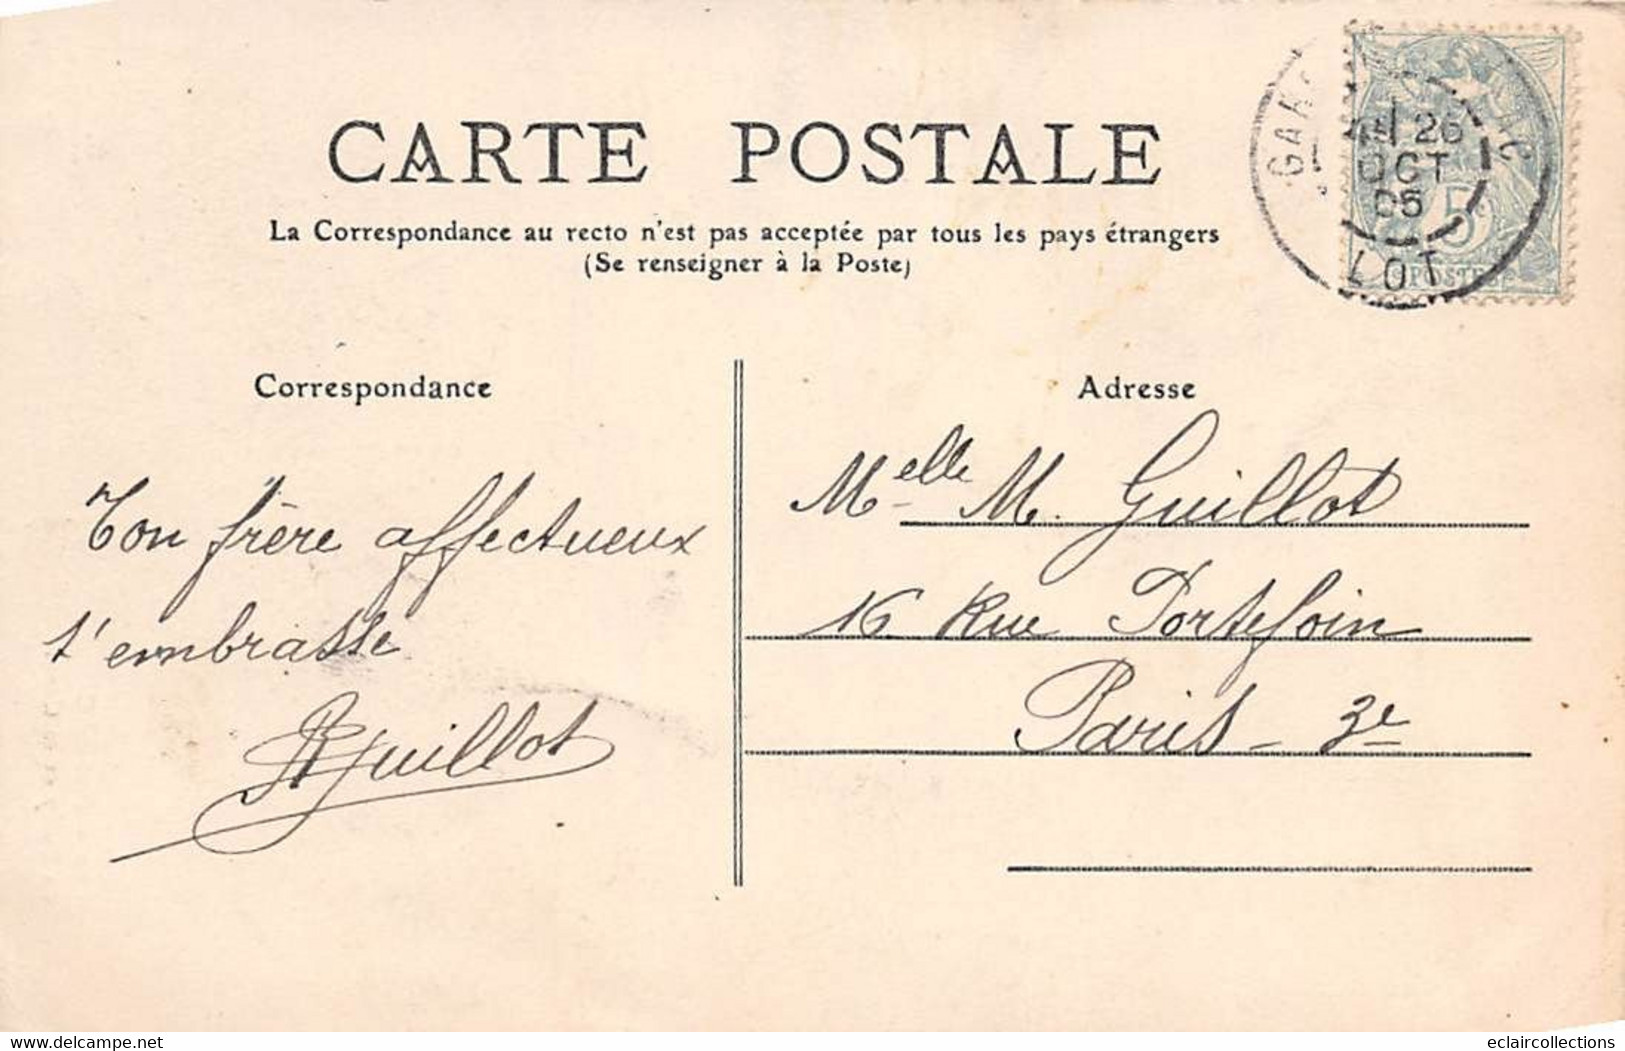 CARTE POSTALE
La Correspondance au recto n'est pas acceptée par tous les pays étrangers
(Se renseigner à la Poste)
26
OCT
05
LOT
5
POSTE
Correspondance
Adresse
Ton frère affectueux
t'embrasse
Guillot
Melle M. Guillot
16 Rue Portefoin
Paris - 3e
www.delcampe.net
eclaircollections